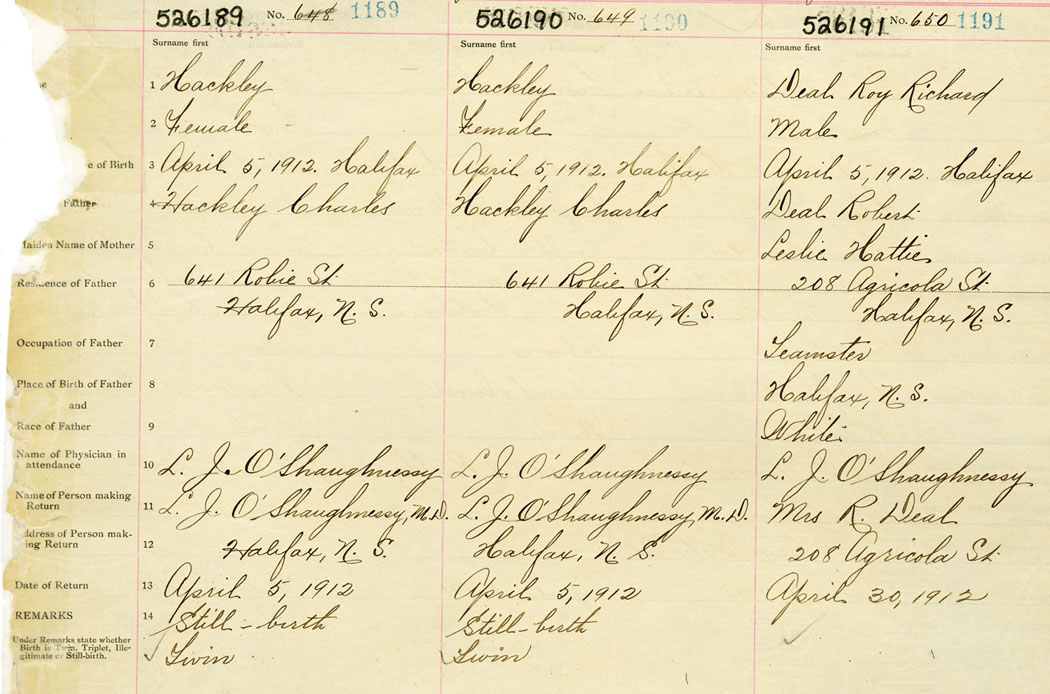 526189 No. 648 1189 526190 No. 649 1190 526191 No. 650 1191
Surname first Surname first Surname first
1 Hackley Hackley Deal Roy Richard
2 Female Female Male
e of Birth 3 April 5, 1912. Halifax April 5, 1912. Halifax April 5, 1912. Halifax
Father 4 Hackley Charles Hackley Charles Deal Robert
Maiden Name of Mother 5 Leslie Hattie
Residence of Father 6 641 Robie St. 641 Robie St. 208 Agricola St.
Halifax, N. S. Halifax, N. S. Halifax, N. S.
Occupation of Father 7 Teamster
Place of Birth of Father 8 Halifax, N. S.
and
Race of Father 9 White
Name of Physician in
attendance 10 L. J. O'Shaughnessy L. J. O'Shaughnessy L. J. O'Shaughnessy
Name of Person making
Return 11 L. J. O'Shaughnessy, M.D. L. J. O'Shaughnessy, M.D. Mrs R. Deal
ddress of Person mak-
ing Return 12 Halifax, N. S. Halifax, N. S. 208 Agricola St.
Date of Return 13 April 5, 1912 April 5, 1912 April 30, 1912
REMARKS 14 Still-birth Still-birth
Under Remarks state whether
Birth is Twin, Triplet, Ille-
gitimate or Still-birth. Twin Twin